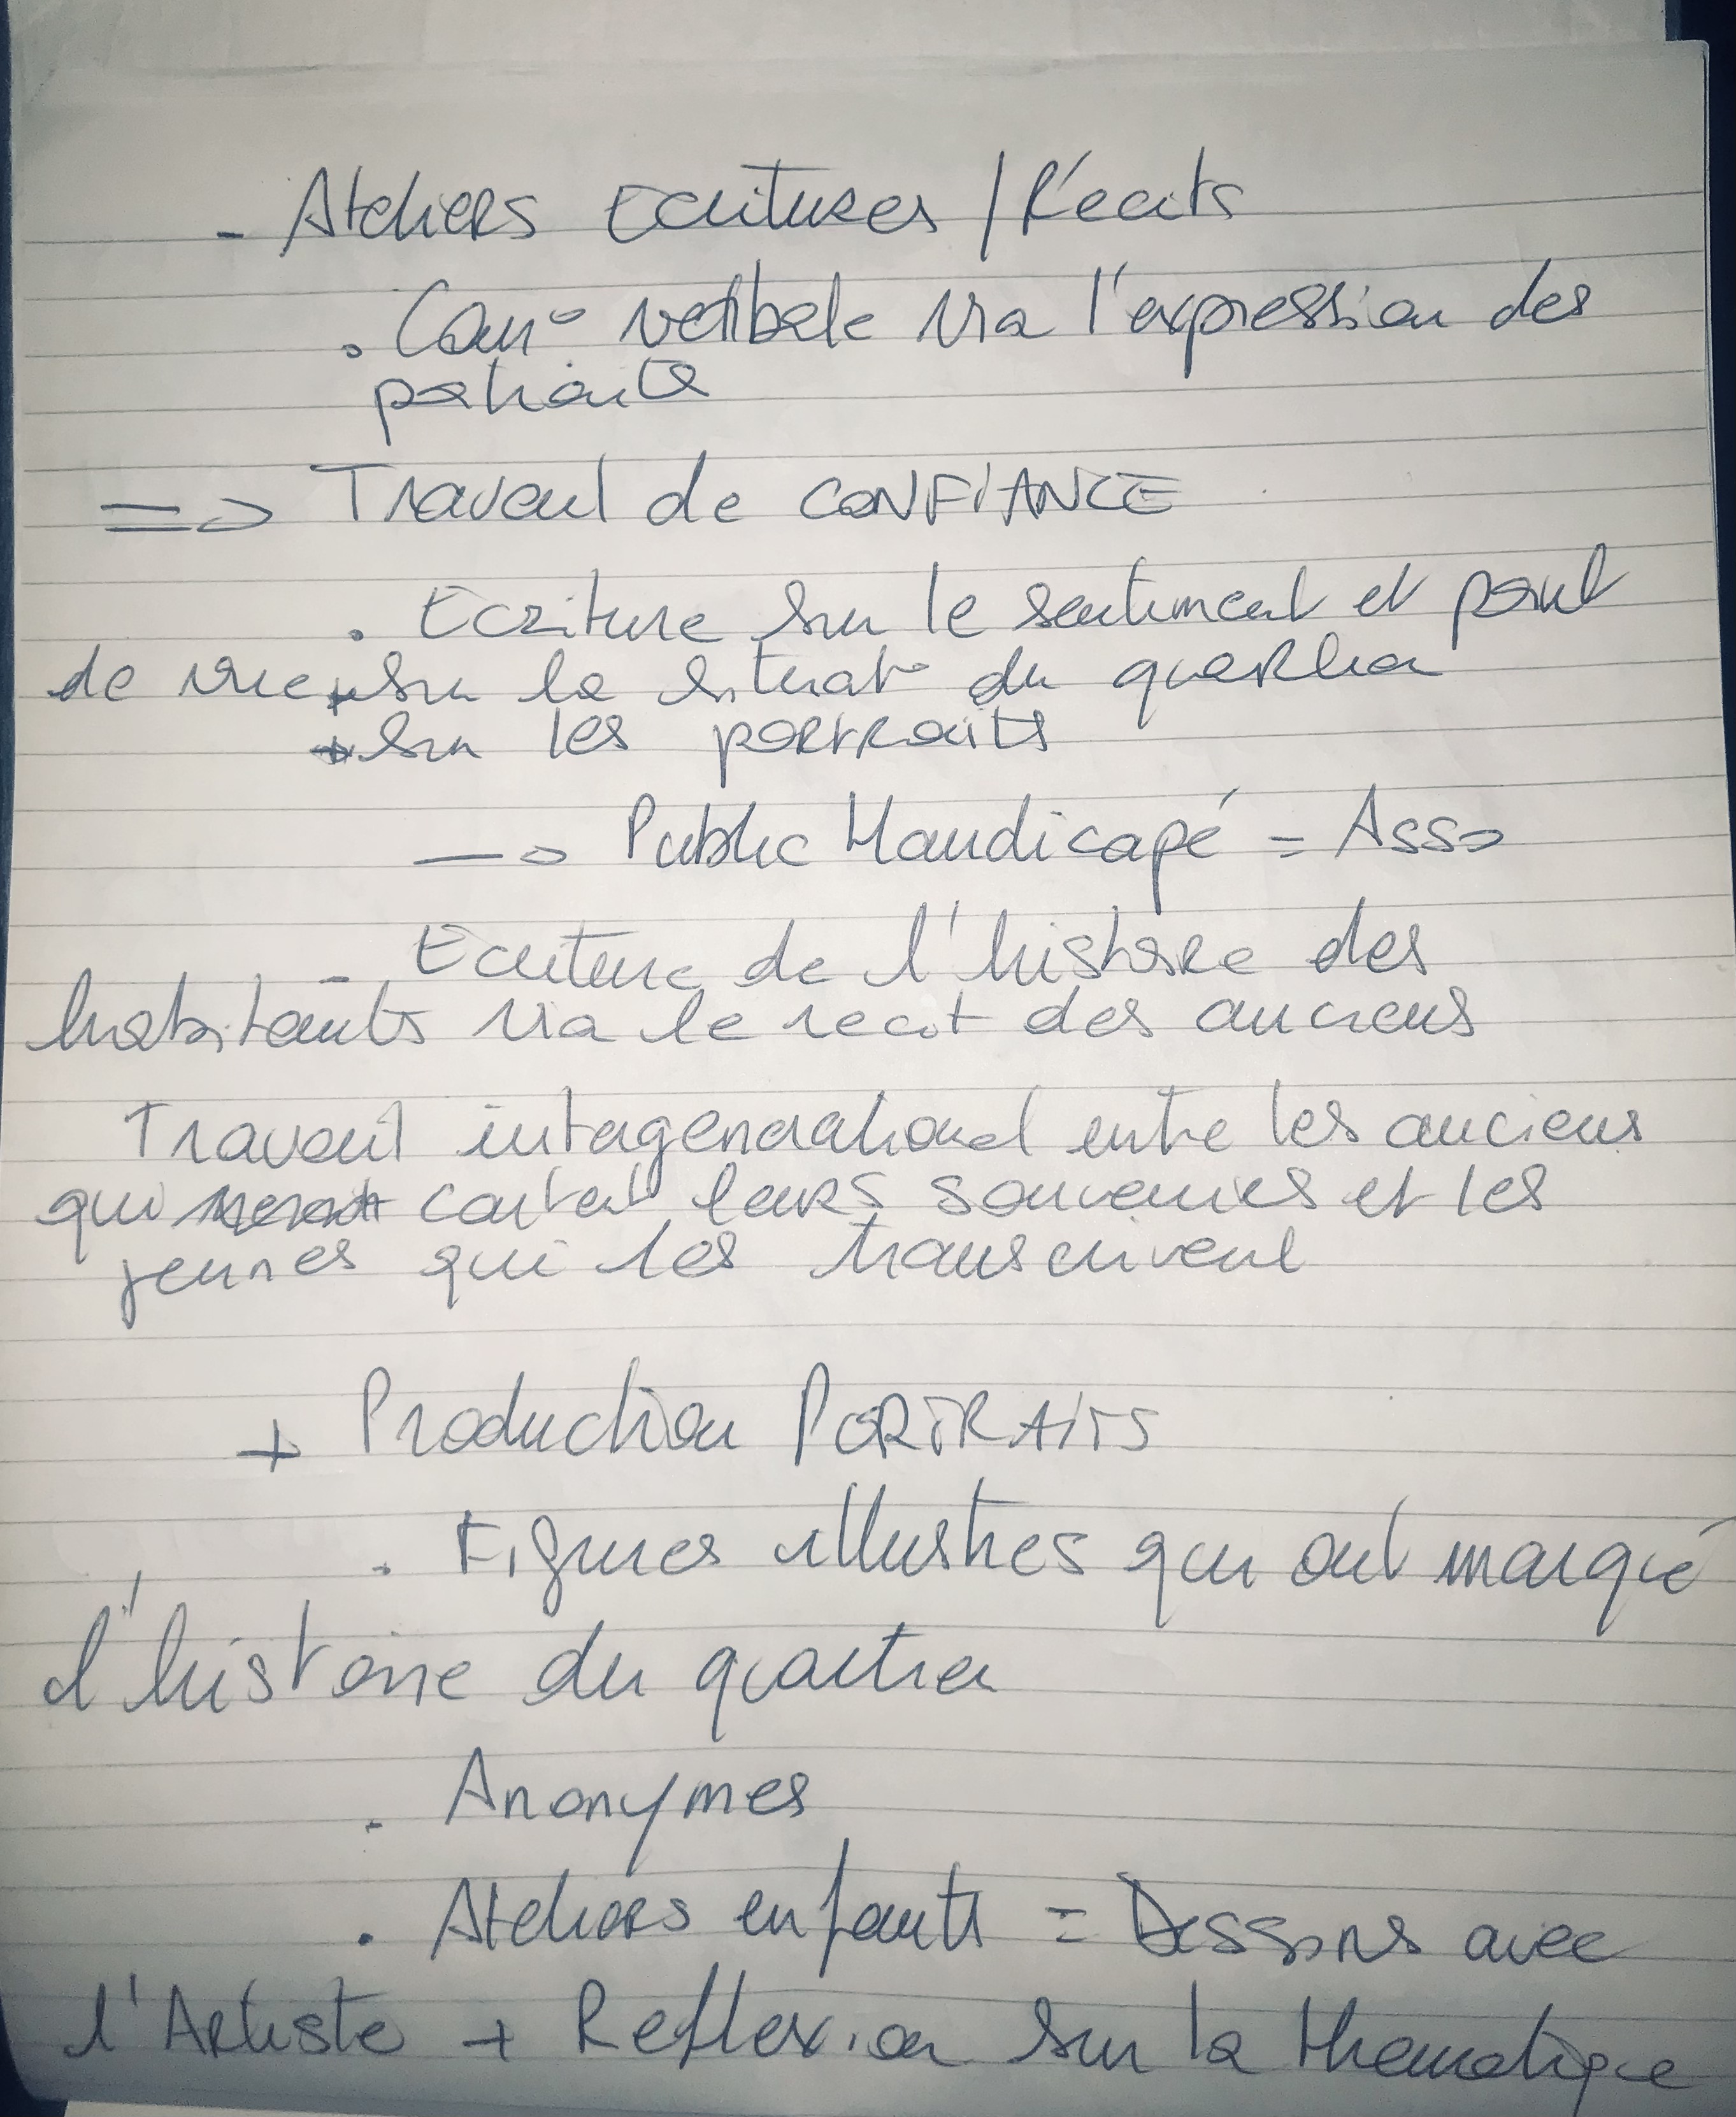 - Ateliers Ecritures / Récits
. Com° verbale via l'expression des
patients
=> Travail de CONFIANCE
. Ecriture sur le sentiment et point
de vue + sur la situat° du quartier
+ sur les portraits
-> Public Handicapé = Asso
- Ecriture de l'histoire des
habitants via le recit des anciens
Travail intergenerational entre les anciens
qui content leurs souvenirs et les
jeunes qui les transcrivent
+ Production PORTRAITS
. Figures illustres qui ont marqué
l'histoire du quartier
. Anonymes
. Ateliers enfants = Dessins avec
l'Artiste + Reflexion sur la thematique